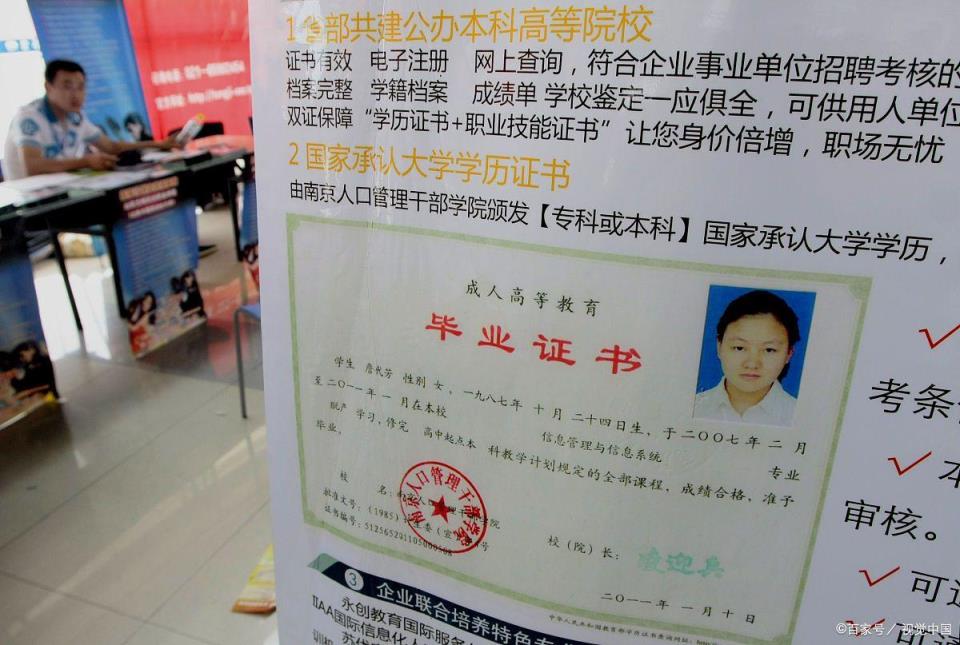 1 省部共建公办本科高等院校
证书有效 电子注册 网上查询，符合企业事业单位招聘考核的
档案完整 学籍档案 成绩单 学校鉴定一应俱全，可供用人单位
双证保障“学历证书+职业技能证书”让您身价倍增，职场无忧
2 国家承认大学学历证书
由南京人口管理干部学院颁发【专科或本科】国家承认大学学历，
成人高等教育
毕业证书
学生 詹代芳 性别 女，一九八七年 十月 二十四日生，于二〇〇七年 二月
至二〇一一年 一月在本校 信息管理与信息系统 专业
脱产 学习，修完 高中起点本 科教学计划规定的全部课程，成绩合格，准予
毕业。
校 名：南京人口管理干部学院
校（院）长：
批准文号：（1985）
证书编号：
二〇一一年 一月十日
中华人民共和国教育部学历证书查询网址：
考条
本
审核。
可
3 企业联合培养特色专
永创教育国际服务
IIAA国际信息化人
©百家号／视觉中国